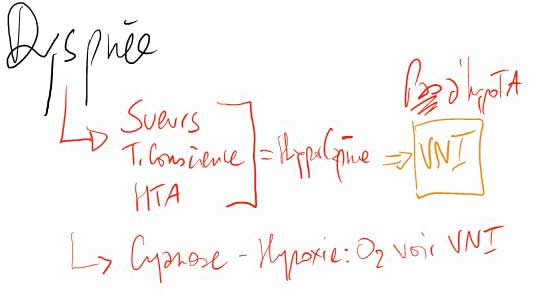 Dyspnée
Pas d'hypoTA
Sueurs
T. Conscience = HyperCapnie => VNI
HTA
Cyanose - Hypoxie : O2 voir VNI